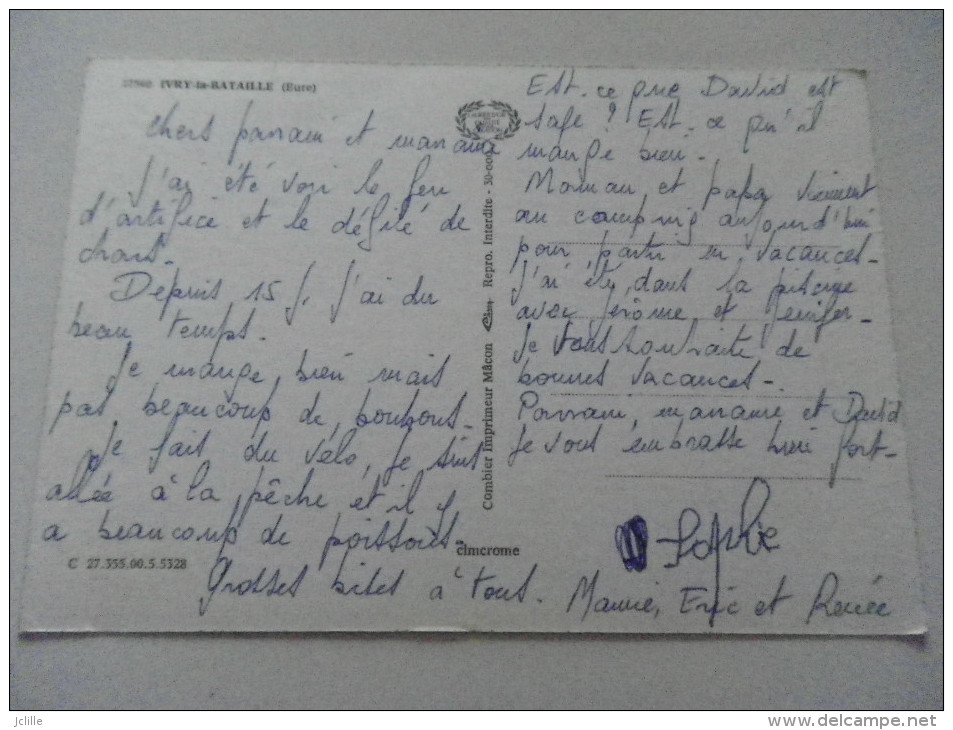 27540 IVRY-la-BATAILLE (Eure)
Chers parrain et marraine
J'ai été voir le feu
d'artifice et le défilé de
chars.
Depuis 15 j, j'ai du
beau temps.
Je mange bien mais
pas beaucoup de bonbons.
Je fait du vélo, je suis
allée à la pêche et il y
a beaucoup de poissons.
C 27.355.00.5.5328
cimcrome
Grosses bises à tous.
Combier Imprimeur Mâcon Repro. Interdite - 30-000
Est-ce que David est
sage ? Est-ce qu'il
mange bien.
Maman et papa viennent
au camping aujourd'hui
pour partir en vacances.
J'ai été dans la piscine
avec Jérôme et Jennifer.
Je vous souhaite de
bonnes vacances.
Parrain, marraine et David
Je vous embrasse bien fort.
Sophie
Mamie, Eric et Renée
jclille
www.delcampe.net